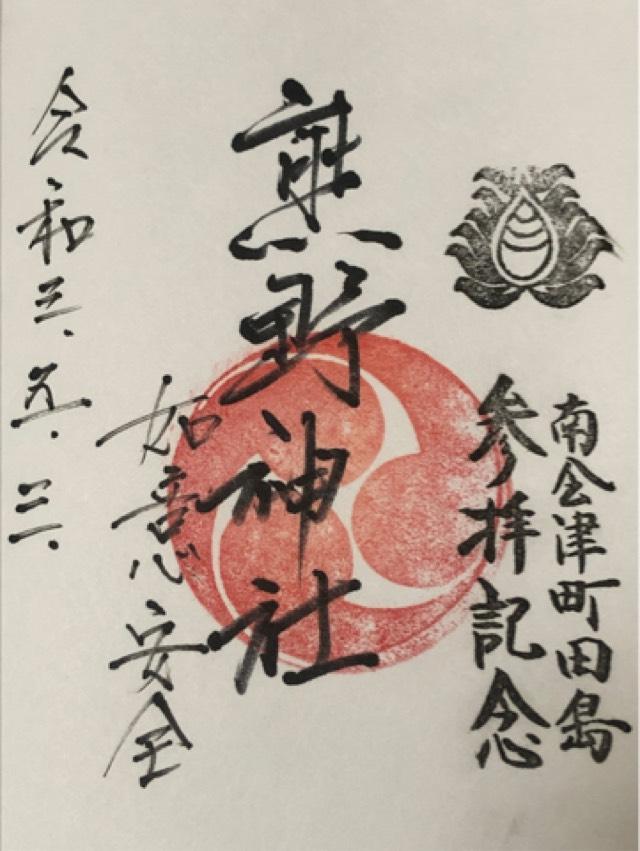 南会津町田島
参拝記念
熊野神社
如意心安全
令和三.五.三.